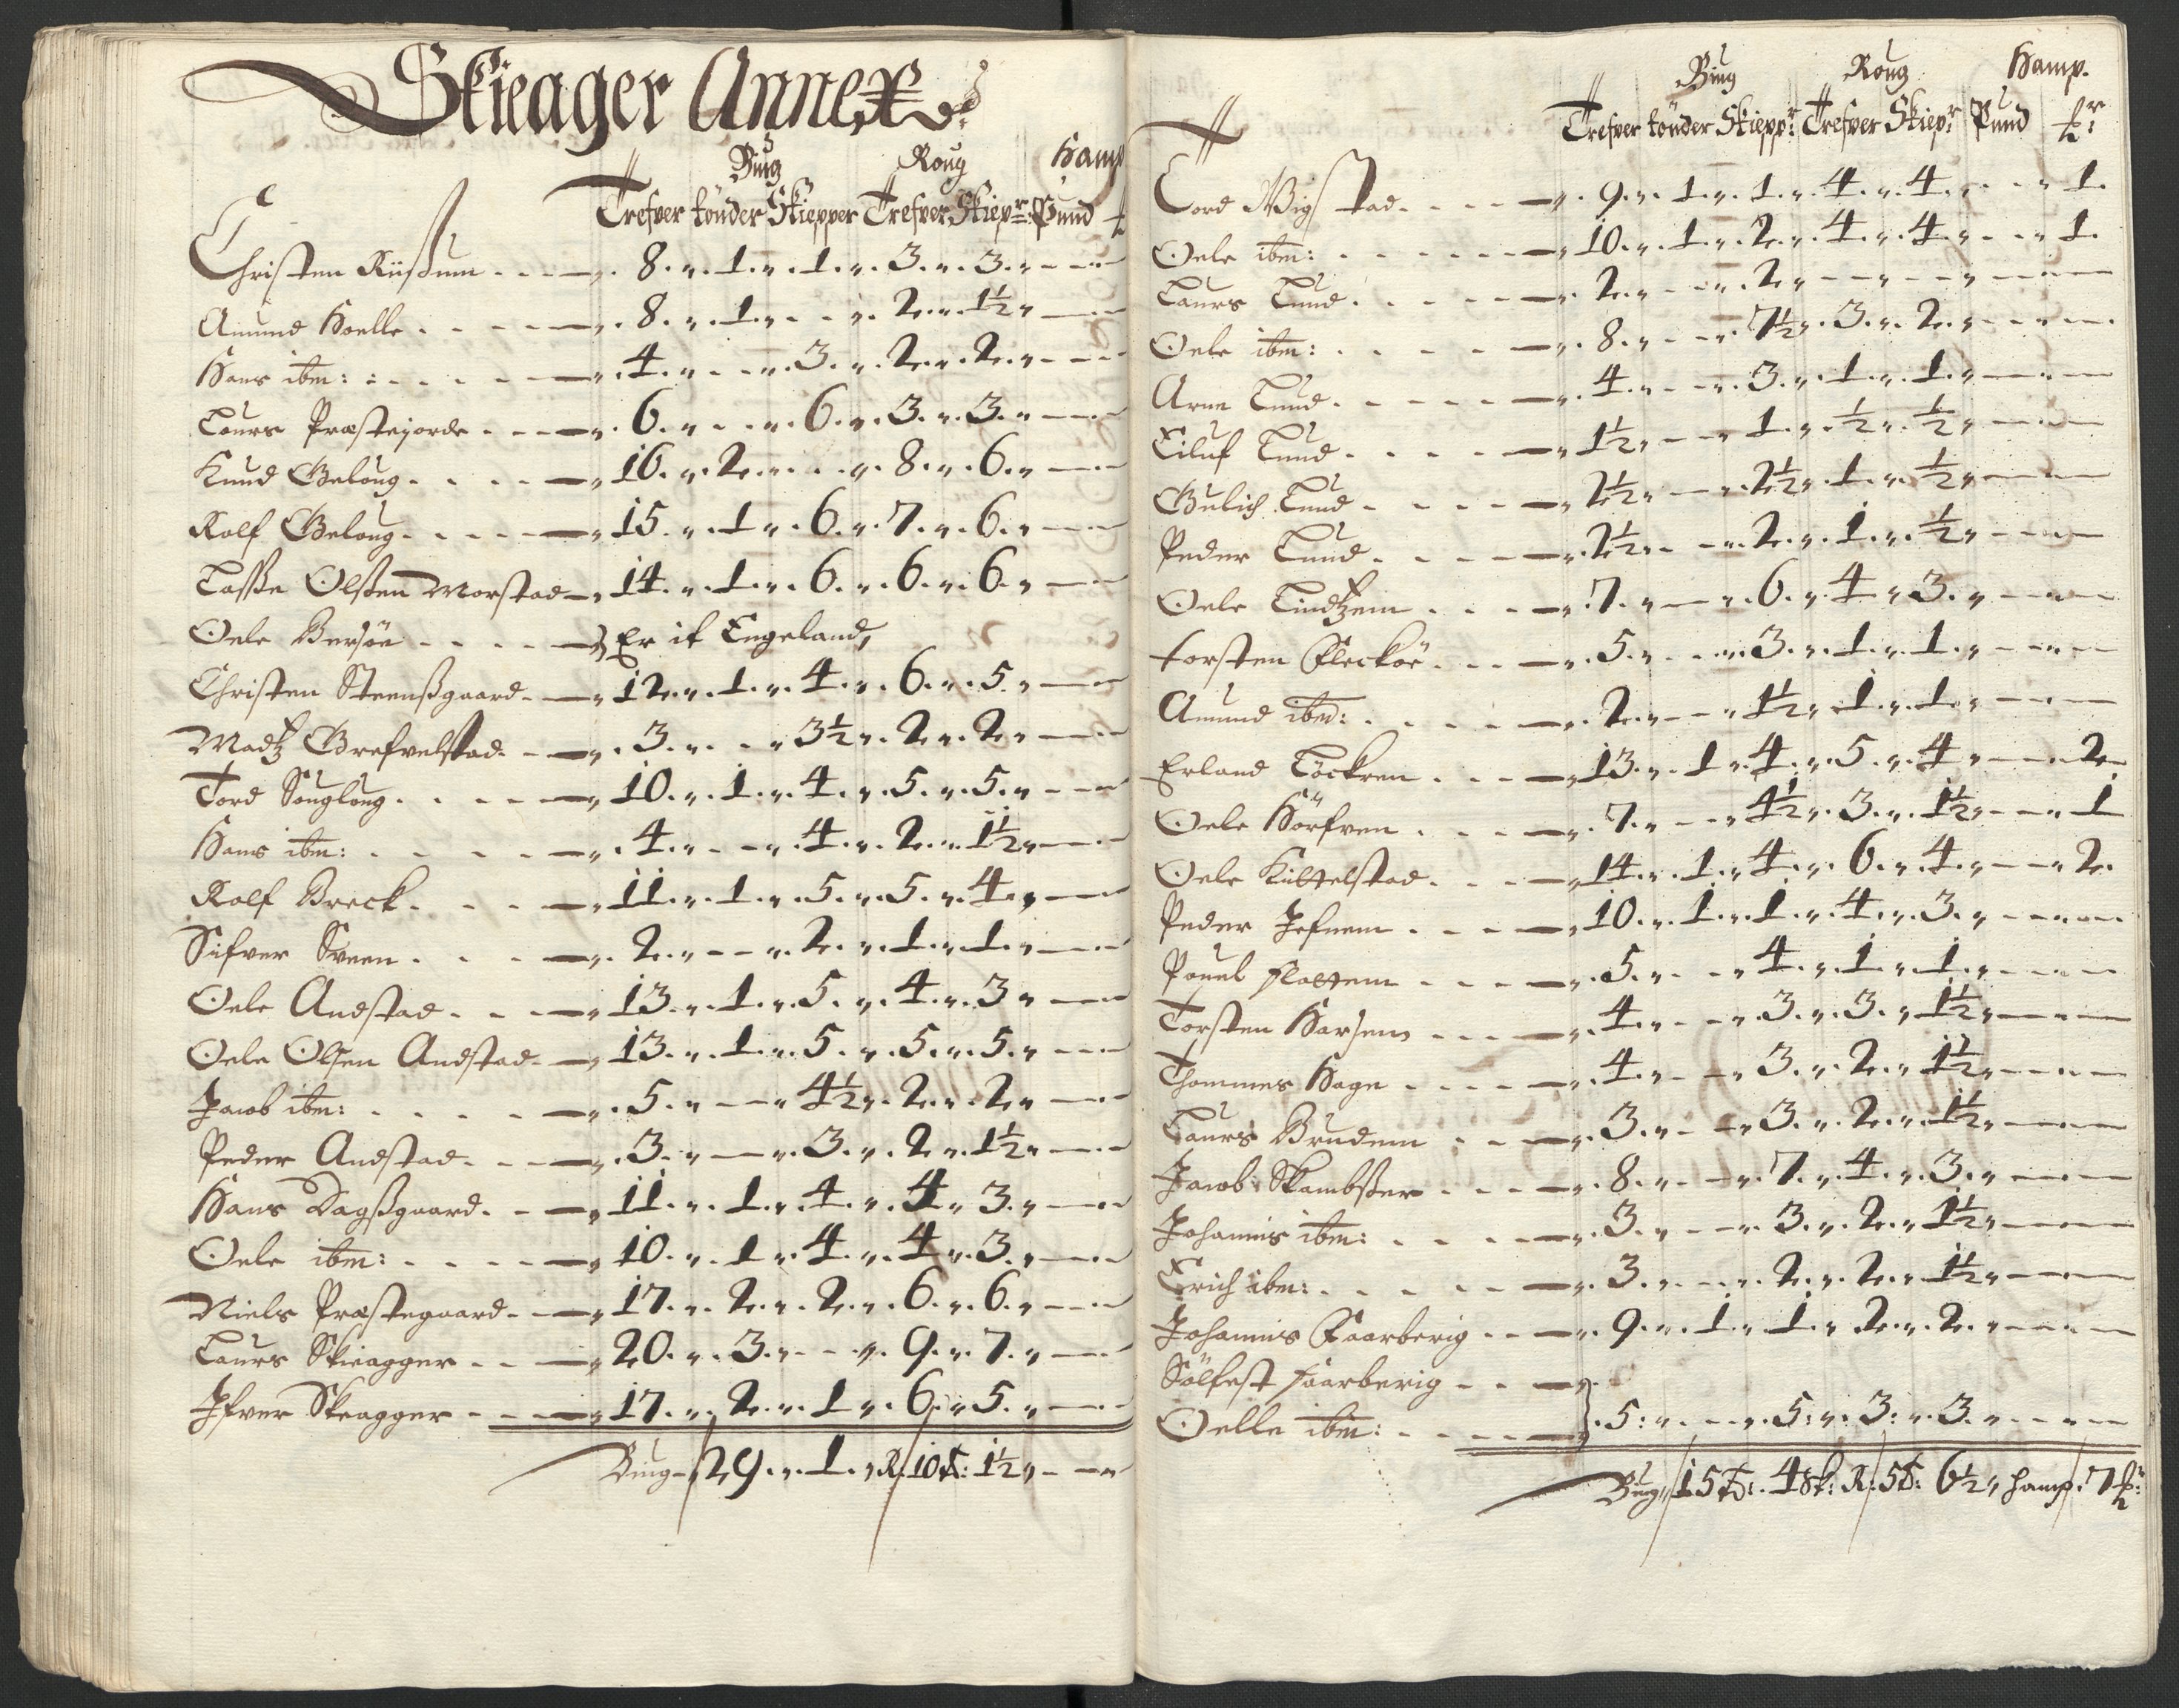 Skieager Annex
Biug Roug Hamp
Trefver tönder Skiepper Trefver Skiepr: Pund
Christen Riißum - - - 8. 1. 1. 3. 3. - -
Amund Hoelle - - - 8. 1. - 2. 1½ -
Hans ibm: - - - 4. - 3. 2. 2. - -
Lours Præstejorde - - - 6. - 6. 3. 3. -
Knud Gieloug - - - 16. 2. - 8. 6. -
Rolf Gieloug - - - 15. 1. 6. 7. 6. -
Laſße Olßen Morstad - 14. 1. 6. 6. 6. -
Oele Bersöe - - - Er it Engeland,
Christen Steenßgaard - 12. 1. 4. 6. 5. -
Madtz Grefvelstad - - 3. - 3½ 2. 2. -
Tord Sougloug - - - 10. 1. 4. 5. 5. - -
Hans ibm: - - - 4. - 4. 2. 1½ -
Rolf Breck - - - 11. 1. 5. 5. 4. -
Sifver Sveen - - - 2. - 2. 1. 1. -
Oele Andstad - - - 13. 1. 5. 4. 3 -
Oele Olsen Andstad - 13. 1. 5. 5. 5. -
Jacob ibm: - - - 5. - 4½ 2. 2. -
Peder Andstad - - - 3. - 3. 2 1½ -
Hans Dagßgaard - - 11. 1. 4. 4. 3. -
Oele ibm: - - - 10. 1 4. 4. 3. -
Niels Præstegaard - - 17. 2. 2. 6. 6. -
Laurs Skieagger - - 20. 3. - 9. 7. -
Ifver Skeagger - - - 17. 2. 1. 6. 5. -
Biug - 29. 1. R. 10 t: 1½ - -
Biug Roug Hamp.
Trefver tönder Skiepr: Trefver Skiepr Pund
Tord Wigstad - - - 9. 1. 1. 4. 4. - 1.
Oele ibm: - - - 10. 1. 2. 4. 4. - 1.
Laurs Lund - - - 2. - 2. - - -
Oele ibm: - - - 8. - 7½ 3. 2. - -
Arne Lund - - - 4. - 3. 1. 1. -
Eiluf Lund - - - 1½ - 1. ½ ½ -
Gulich Lund - - - 2½ - 2½ 1. ½ -
Peder Lund - - - 2½ - 2. 1. ½ -
Oele Lindtzem - - - 7. - 6. 4 3. -
torsten Flecköe - - - 5. - 3. 1. 1. -
Amund ibm: - - - 2. - 1½ 1. 1. -
Erland Löckren - - - 13. 1 4. 5. 4 - 2.
Oele Hörfven - - - 7. - 4½ 3. 1½ - 1
Oele Kiittelstad - - - 14. 1. 4. 6. 4. - 2.
Peder Jefnem - - - 10. 1. 1. 4. 3. -
Pouel flottem - - - 5. - 4. 1. 1. -
Torsten Harjem - - - 4. - 3. 3. 1½ -
Thommes Hage - - - 4. - 3. 2. 1½ -
Laurs Brudem - - - 3. - 3. 2. 1½ -
Jacob Skambßer - - - 8. - 7. 4. 3. -
Johannis ibm: - - - 3. - 3. 2. 1½ -
Erich ibm: - - - 3. - 2. 2. 1½ -
Johannis Faarberig - - 9. 1. 1. 2. 2. -
Sölfest faarberig - - -
Oelle ibm: - - - 5: - 5: 3: 3. - -
Biug 15 td: 4 sk: R: 5 t: 6½ hamp: 7